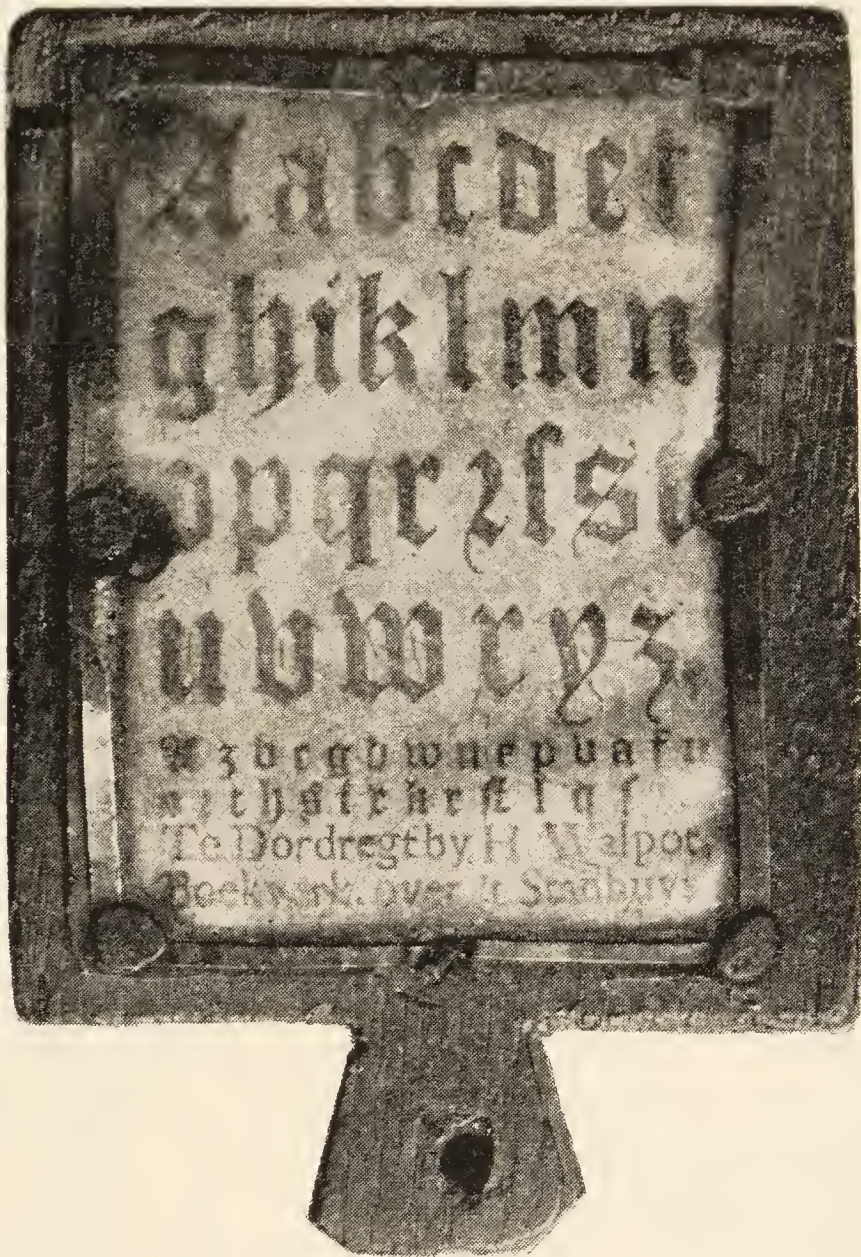 A a b c d e f
g h i k l m n
o p q r ꝛ ſ s t
u v w x y z
A z v c g d w n e p b a f u
Te Dordregt by H. Walpot,
Boekverk. over 't Stadhuys